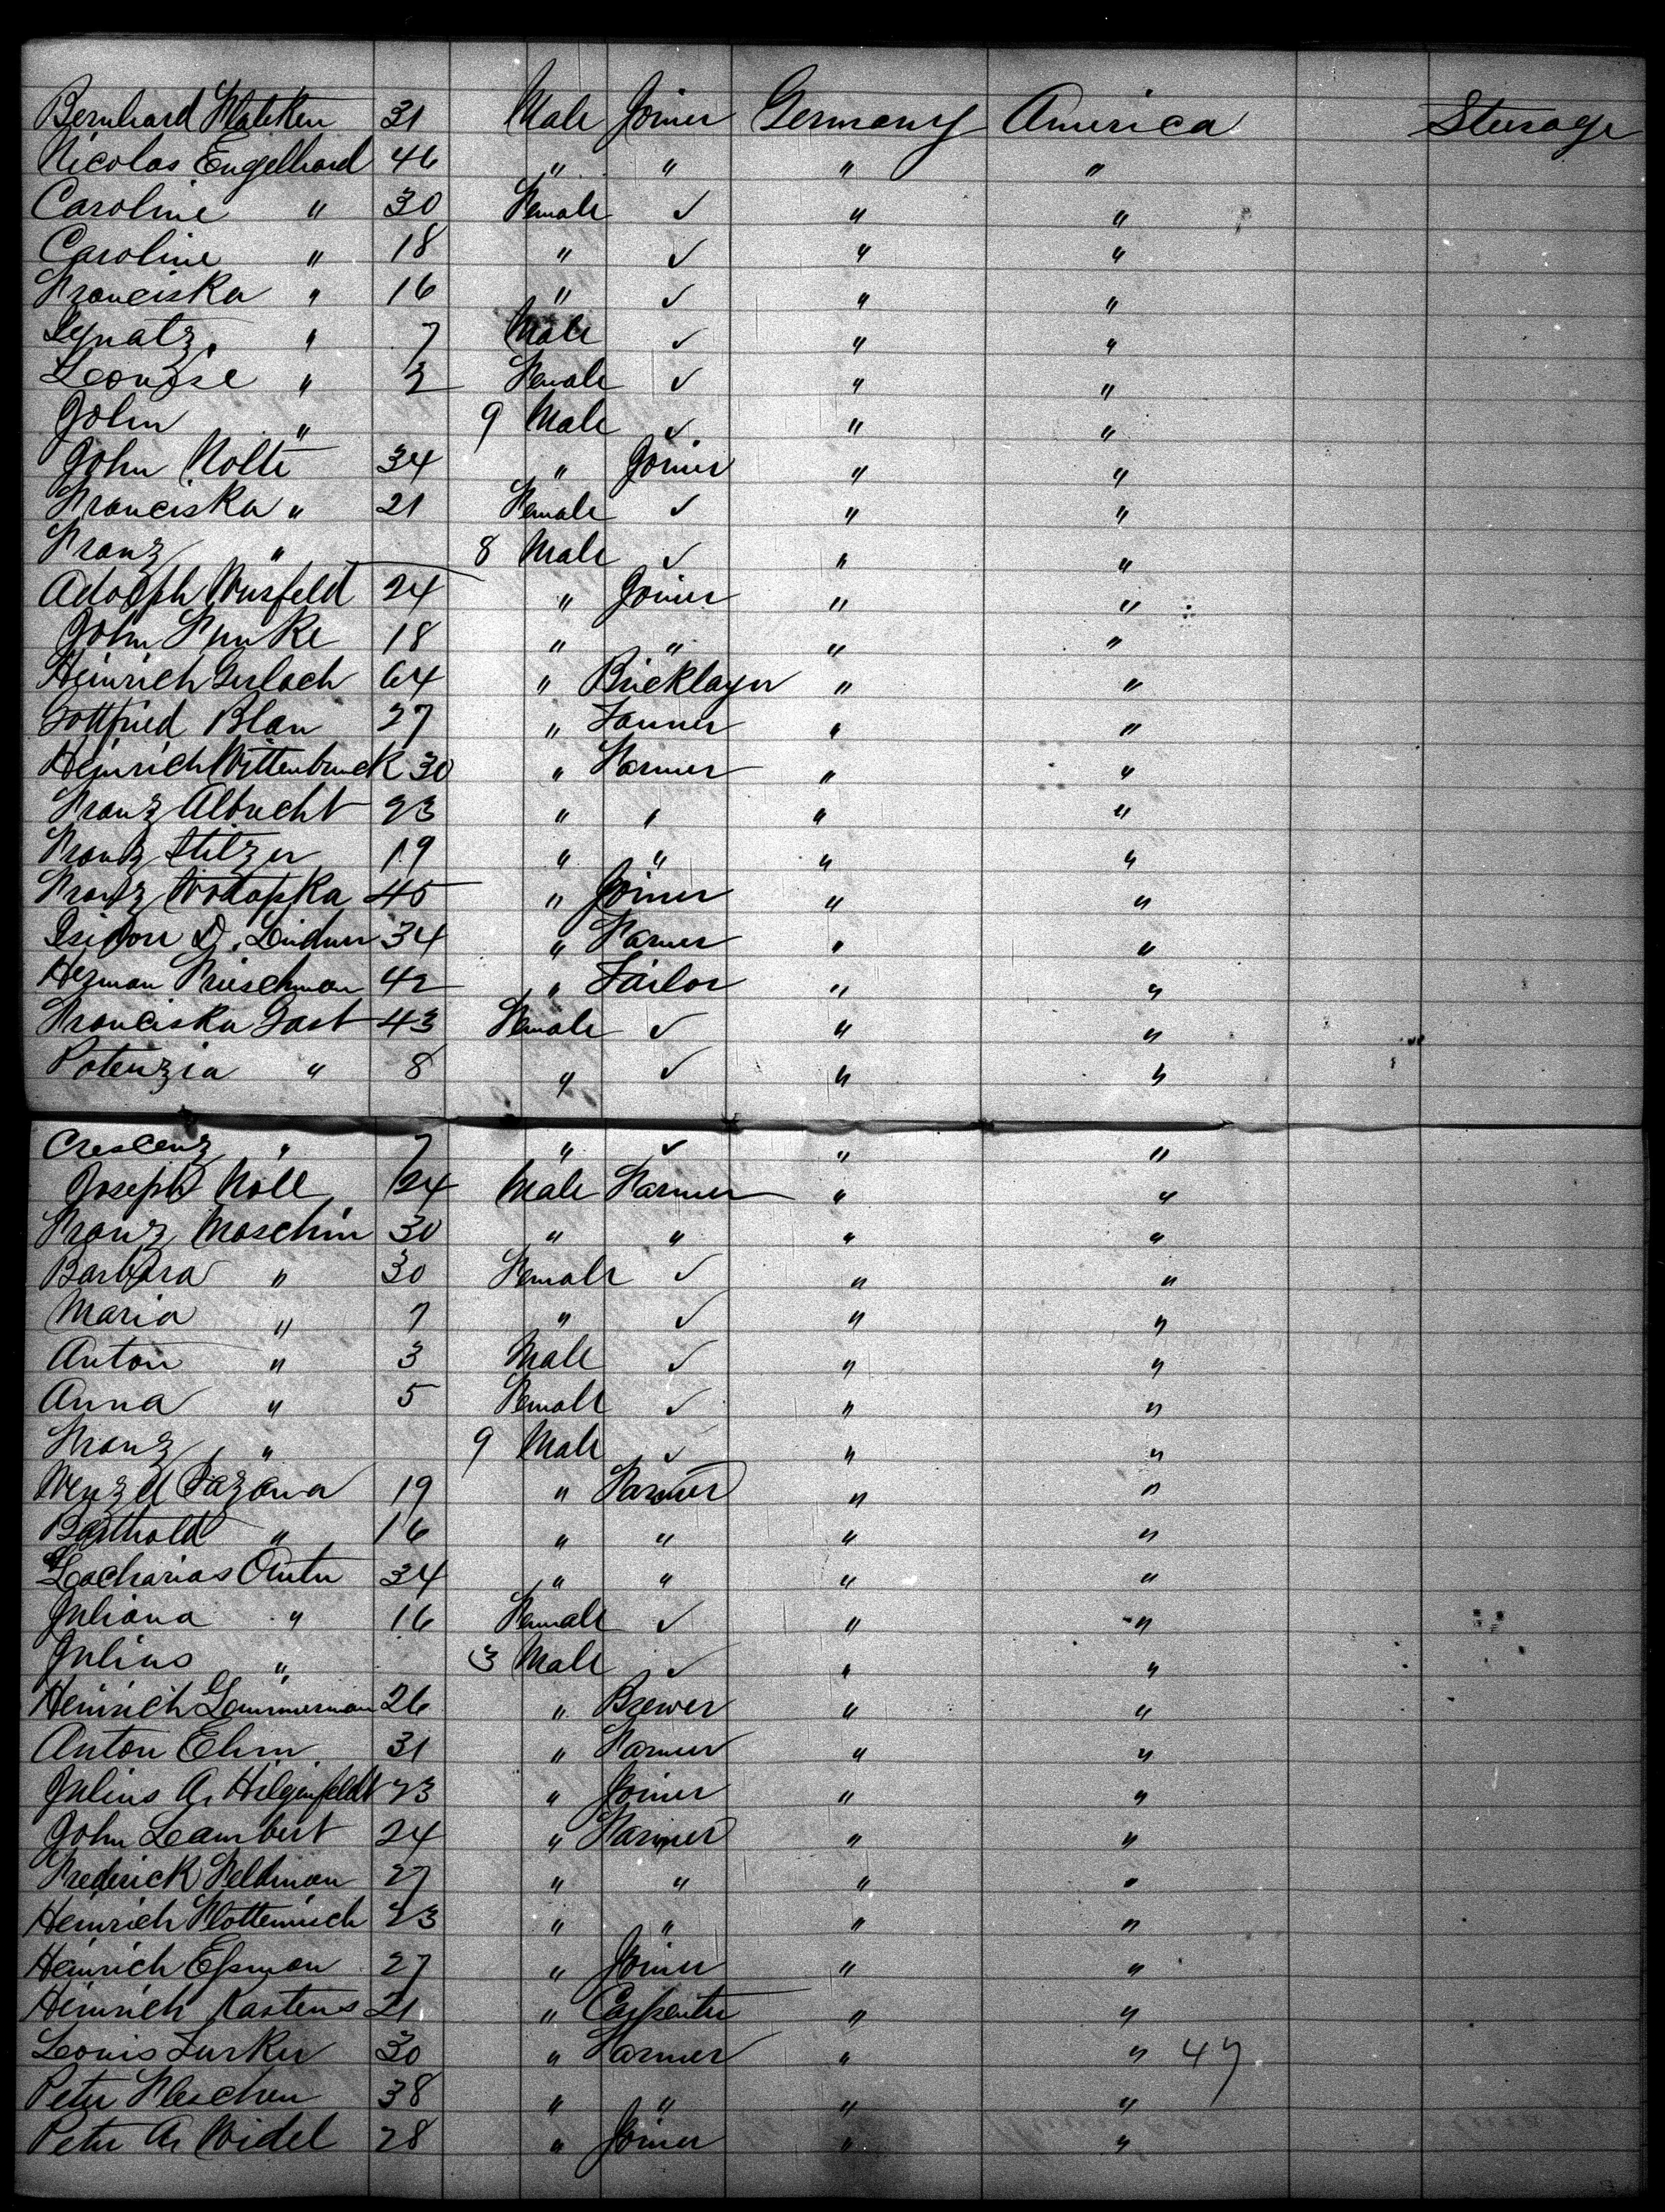 Bernhard Mahken 31 Male Joiner Germany America Steerage
Nicolas Engelhard 46 " " " "
Caroline " 30 Female ✓ " "
Caroline " 18 " ✓ " "
Franciska " 16 " ✓ " "
Ignatz " 7 Male ✓ " "
Leonise " 3 Female ✓ " "
John " 9 Male ✓ " "
John Nolte 34 " Joiner " "
Franciska " 21 Female ✓ " "
Franz " 8 Male ✓ " "
Adolph Wusfeld 24 " Joiner " "
John Funke 18 " " " "
Heinrich Gerlach 64 " Bricklayer " "
Gottfried Blau 27 " Tanner " "
Heinrich Wittenbruck 30 " Farmer " "
Franz Albrecht 23 " " " "
Franz Stilzer 19 " " " "
Franz Wodapka 45 " Joiner " "
Isidore D. Lindner 34 " Farmer " "
Herman Frieschman 42 " Tailor " "
Franciska Gast 43 Female ✓ " "
Potenzia " 8 " ✓ " "
Crescenz " 7 " ✓ " "
Joseph Noll 24 Male Farmer " "
Franz Maschin 30 " " " "
Barbara " 30 Female ✓ " "
Maria " 7 " ✓ " "
Anton " 3 Male ✓ " "
Anna " 5 Female ✓ " "
Franz " 9 Male ✓ " "
Wenzel Fazana 19 " Farmer " "
Barthold " 16 " " " "
Zacharias 34 " " " "
Juliana " 16 Female ✓ " "
Julius " 3 Male ✓ " "
Heinrich Zammerman 26 " Brewer " "
Anton Ehm 31 " Farmer " "
Julius A. Hilgenfeldt 23 " Joiner " "
John Lambert 24 " Farmer " "
Frederick Feldman 27 " " " "
Heinrich 23 " " " "
Heinrich Essman 27 " Joiner " "
Heinrich Kastens 21 " Carpenter " "
Louis Zurker 30 " Farmer " " 47
Peter Fleschen 38 " " " "
Peter A. Widel 28 " Joiner " "